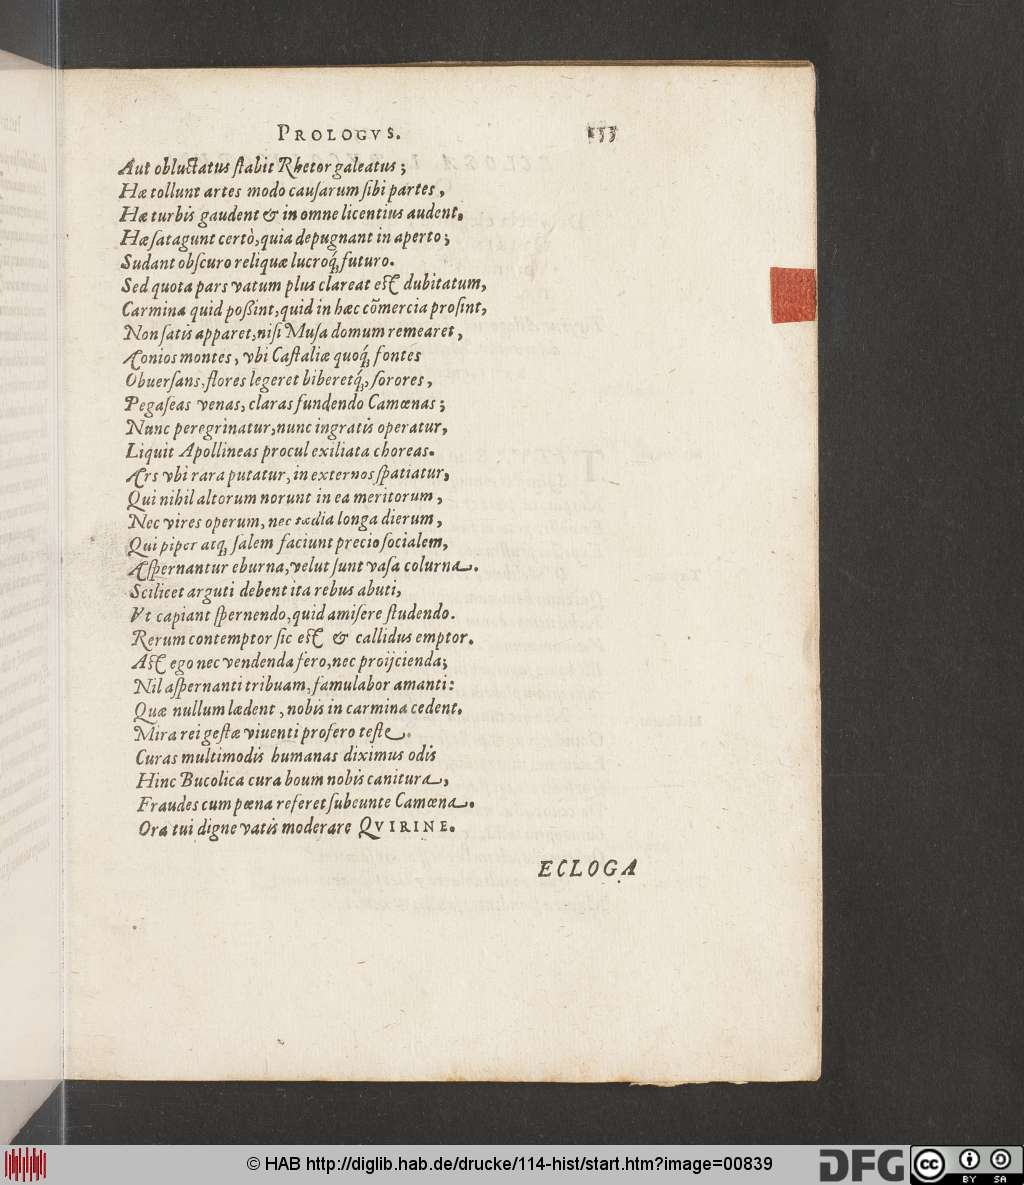 PROLOGVS.
Aut obluctatus stabit Rhetor galeatus;
Hæ tollunt artes modo causarum sibi partes,
Hæ turbis gaudent & in omne licentius audent.
Hæ satagunt certò, quia depugnant in aperto;
Sudant obscuro reliquæ lucroq́; futuro.
Sed quota pars vatum plus clareat est dubitatum,
Carmina quid poßint, quid in hæc cõmercia prosint,
Non satis apparet, nisi Musa domum remearet,
Aonios montes, vbi Castaliæ quoq́; fontes
Obuersans, flores legeret biberetq́;, sorores,
Pegaseas venas, claras fundendo Camœnas;
Nunc peregrinatur, nunc ingratis operatur,
Liquit Apollineas procul exiliata choreas.
Ars vbi rara putatur, in externos spatiatur,
Qui nihil altorum norunt in ea meritorum,
Nec vires operum, nec tædia longa dierum,
Qui piper atq; salem faciunt precio socialem,
Aspernantur eburna, velut sunt vasa colurna.
Scilicet arguti debent ita rebus abuti,
Vt capiant spernendo, quid amisere studendo.
Rerum contemptor sic est & callidus emptor.
Ast ego nec vendenda fero, nec proijcienda;
Nil aspernanti tribuam, famulabor amanti:
Quæ nullum lædent, nobis in carmina cedent.
Mira rei gestæ viuenti profero teste.
Curas multimodis humanas diximus odis
Hinc Bucolica cura boum nobis canitura,
Fraudes cum pœna referet subeunte Camœna.
Ora tui digne vatis moderare QVIRINE.
ECLOGA
© HAB http://diglib.hab.de/drucke/114-hist/start.htm?image=00839
DFG
cc
BY
SA